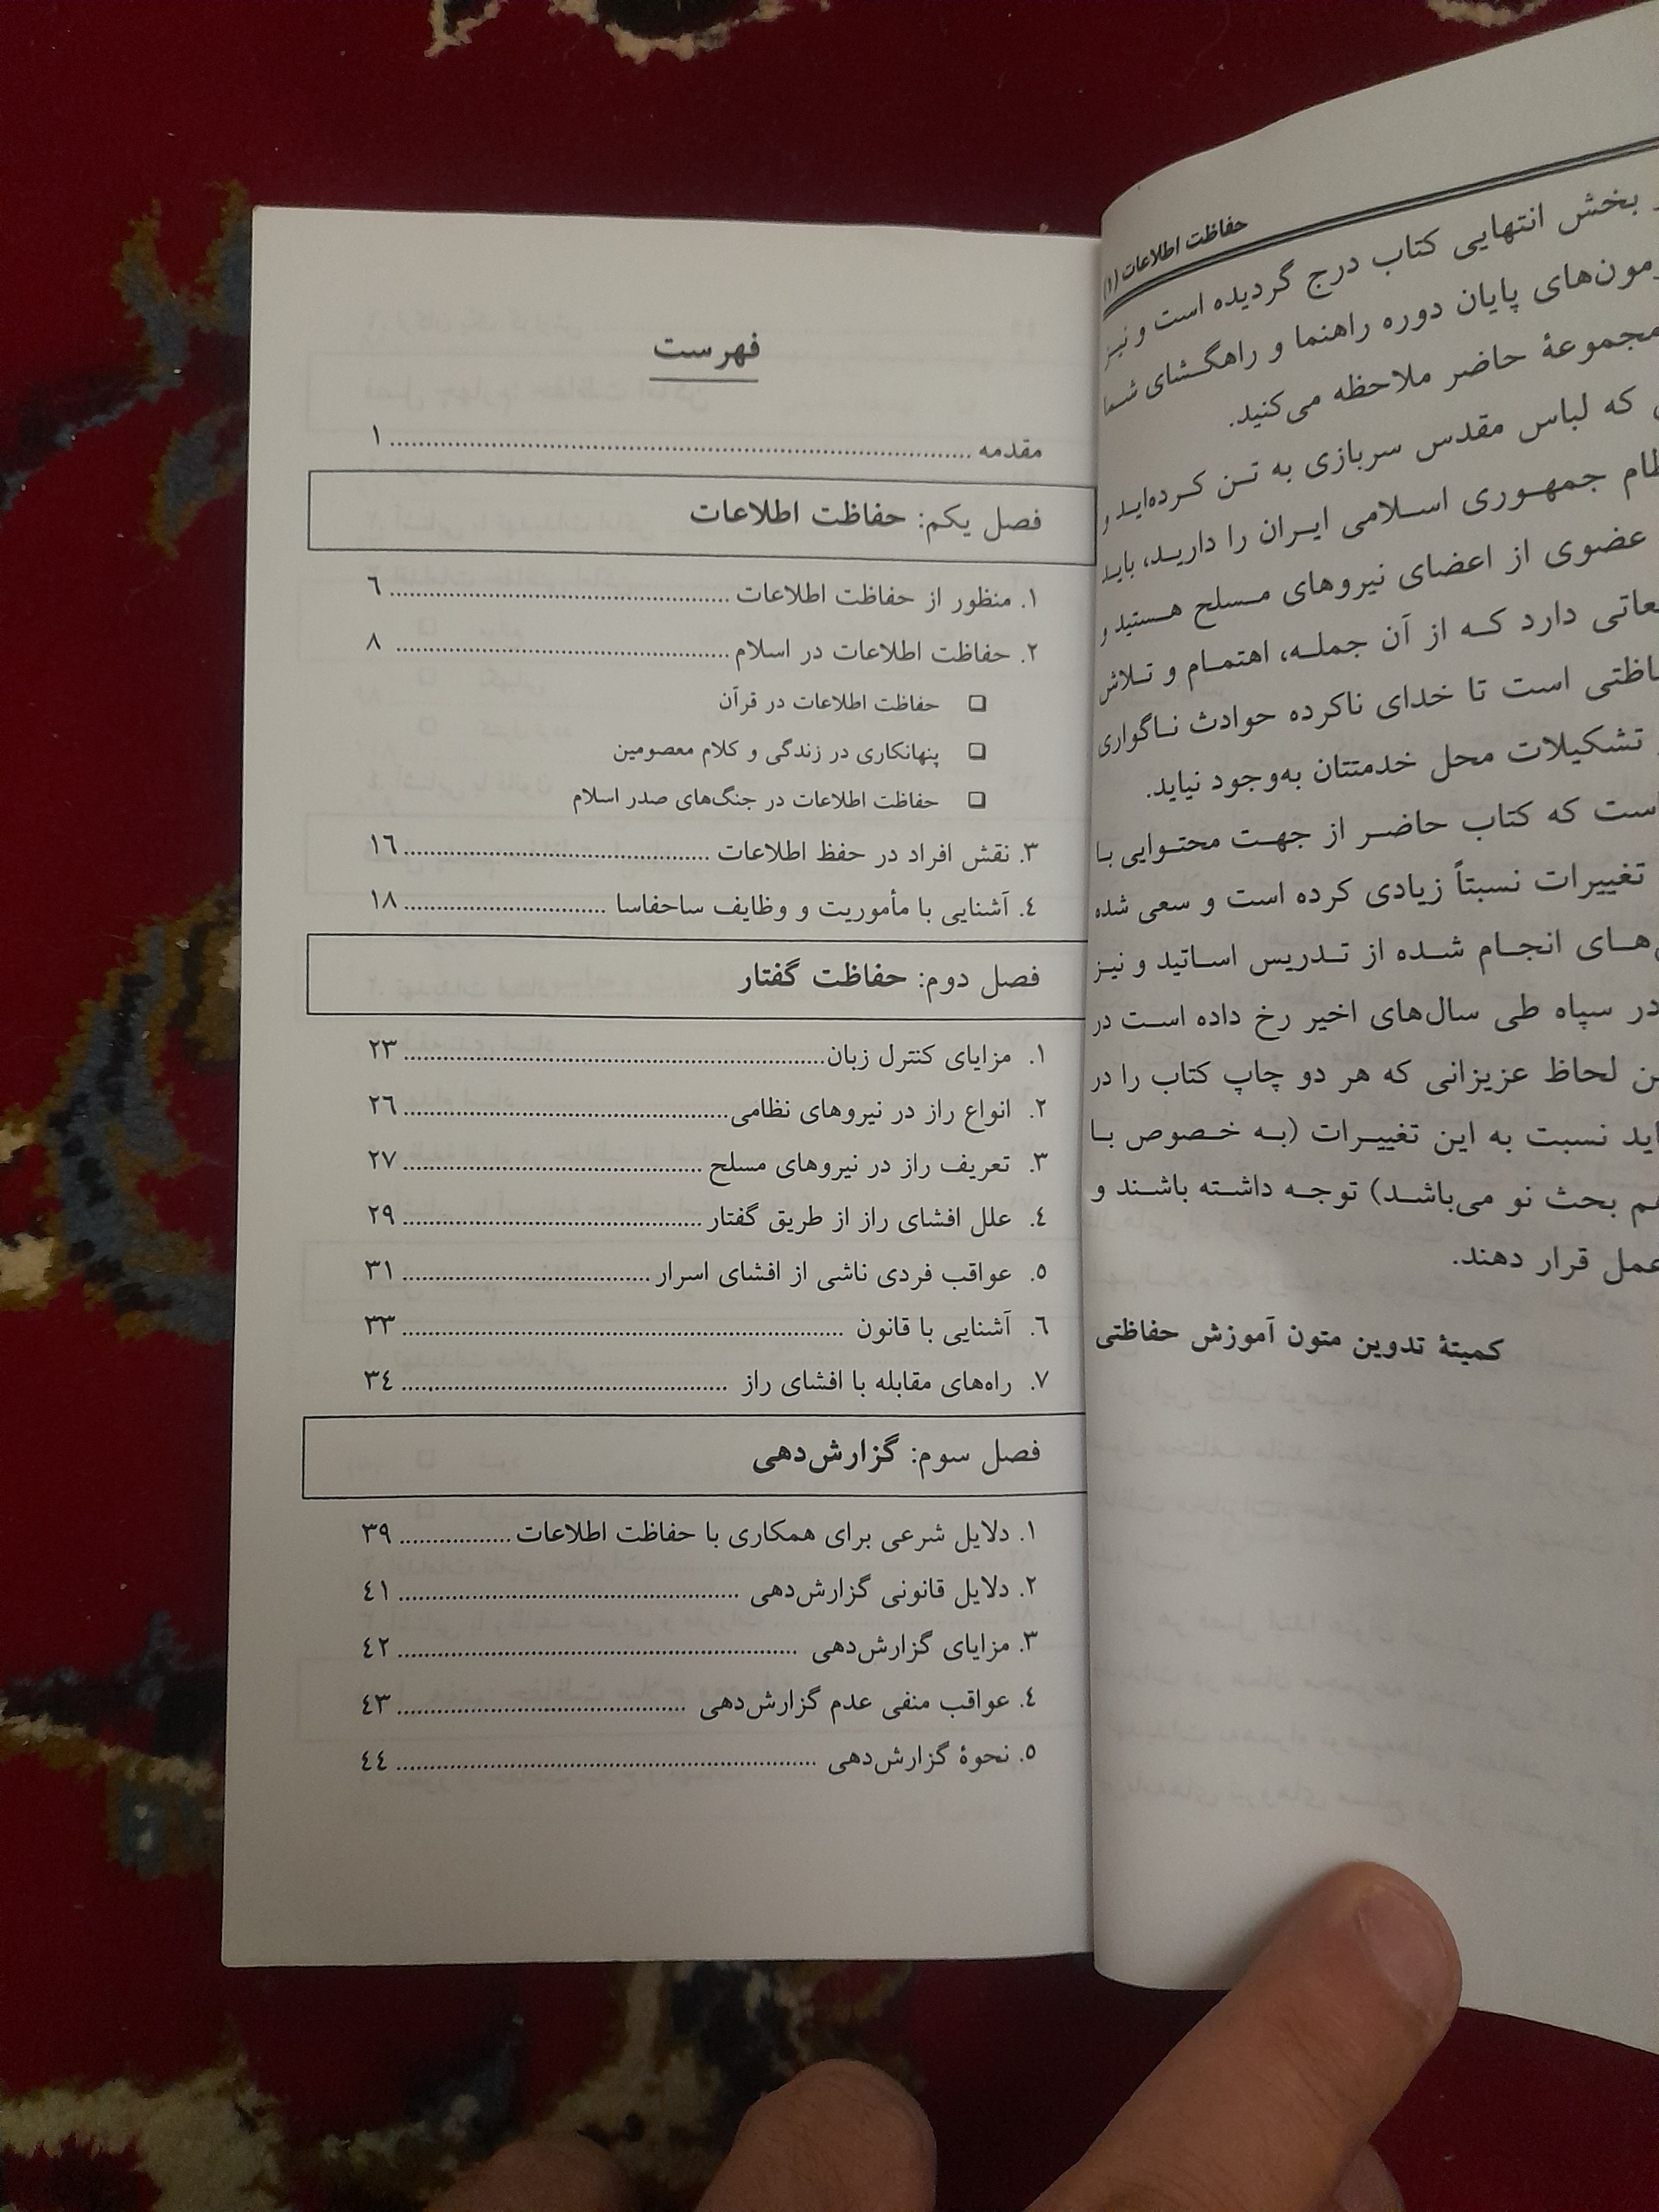 حفاظت اطلاعات (۱)
بخش انتهایی کتاب درج گردیده است و نیز
مون‌های پایان دوره راهنما و راهگشای شما
مجموعهٔ حاضر ملاحظه می‌کنید.
که لباس مقدس سربازی به تن کرده‌اید و
جمهوری اسلامی ایران را دارید، باید
عضوی از اعضای نیروهای مسلح هستید و
دارد که از آن جمله، اهتمام و تلاش
است تا خدای ناکرده حوادث ناگواری
تشکیلات محل خدمتتان به‌وجود نیاید.
است که کتاب حاضر از جهت محتوایی با
تغییرات نسبتاً زیادی کرده است و سعی شده
های انجام شده از تدریس اساتید و نیز
در سپاه طی سال‌های اخیر رخ داده است در
لحاظ عزیزانی که هر دو چاپ کتاب را در
نسبت به این تغییرات (به خصوص با
بحث نو می‌باشد) توجه داشته باشند و
عمل قرار دهند.
کمیتهٔ تدوین متون آموزش حفاظتی
فهرست
مقدمه ........ ۱
فصل یکم: حفاظت اطلاعات
۱. منظور از حفاظت اطلاعات ........ ٦
۲. حفاظت اطلاعات در اسلام ........ ۸
❑ حفاظت اطلاعات در قرآن
❑ پنهانکاری در زندگی و کلام معصومین
❑ حفاظت اطلاعات در جنگ‌های صدر اسلام
۳. نقش افراد در حفظ اطلاعات ........ ۱٦
٤. آشنایی با مأموریت و وظایف ساحفاسا ........ ۱۸
فصل دوم: حفاظت گفتار
۱. مزایای کنترل زبان ........ ۲۳
۲. انواع راز در نیروهای نظامی ........ ۲٦
۳. تعریف راز در نیروهای مسلح ........ ۲۷
٤. علل افشای راز از طریق گفتار ........ ۲۹
٥. عواقب فردی ناشی از افشای اسرار ........ ۳۱
٦. آشنایی با قانون ........ ۳۳
۷. راه‌های مقابله با افشای راز ........ ۳٤
فصل سوم: گزارش‌دهی
۱. دلایل شرعی برای همکاری با حفاظت اطلاعات ........ ۳۹
۲. دلایل قانونی گزارش‌دهی ........ ٤۱
۳. مزایای گزارش‌دهی ........ ٤۲
٤. عواقب منفی عدم گزارش‌دهی ........ ٤۳
٥. نحوهٔ گزارش‌دهی ........ ٤٤